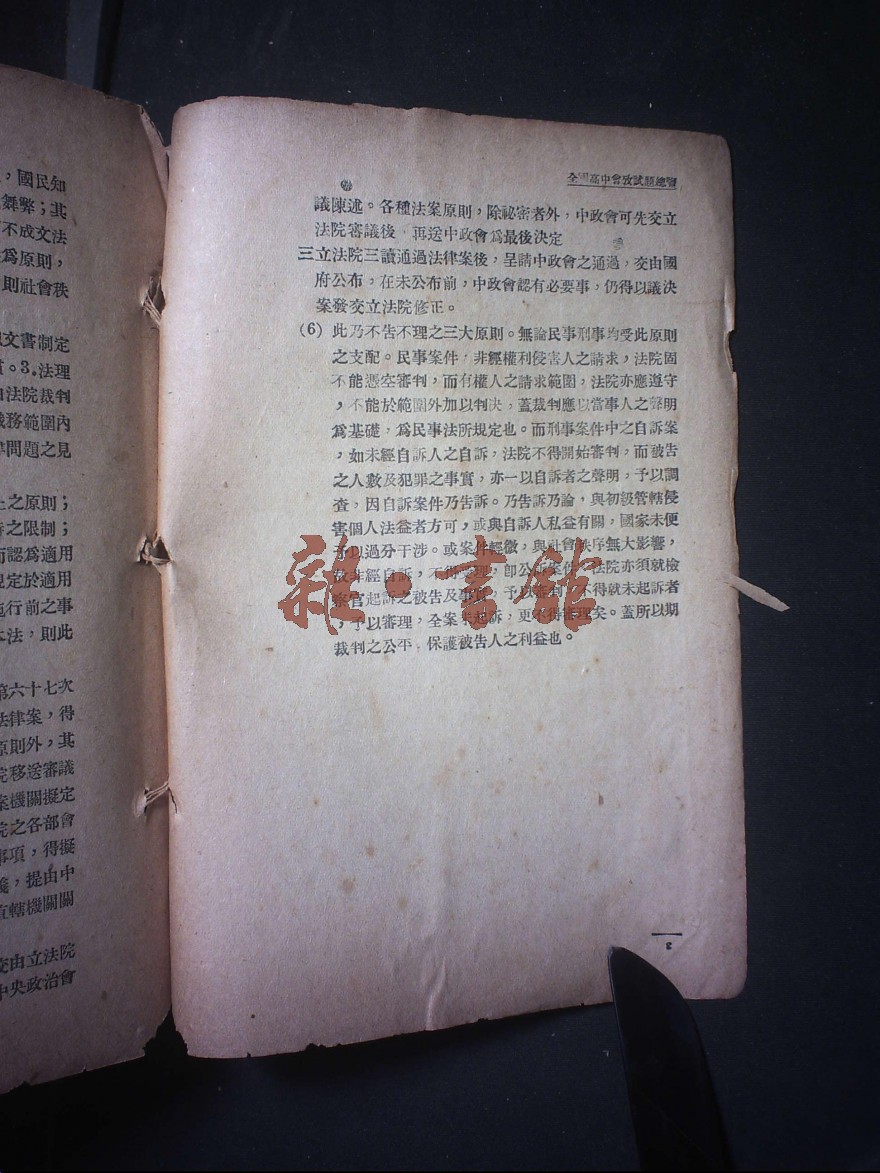 ，國民知
舞弊；其
不成文法
爲原則，
則社會秩
文書制定
。3.法理
由法院裁判
職務範圍內
律問題之見
之原則；
之限制；
而認爲適用
規定於適用
施行前之事
本法，則此
第六十七次
法律案，得
原則外，其
院移送審議
案機關擬定
院之各部會
事項，得擬
，提由中
直轄機關關
交由立法院
中央政治會
全國高中會攷試題總覽
議陳述。各種法案原則，除祕密者外，中政會可先交立
法院審議後，再送中政會爲最後決定
三立法院三讀通過法律案後，呈請中政會之通過，交由國
府公布，在未公布前，中政會認有必要事，仍得以議決
案發交立法院修正。
(6) 此乃不告不理之三大原則。無論民事刑事均受此原則
之支配。民事案件，非經權利侵害人之請求，法院固
不能憑空審判，而有權人之請求範圍，法院亦應遵守
，不能於範圍外加以判決，蓋裁判應以當事人之聲明
爲基礎，爲民事法所規定也。而刑事案件中之自訴案
，如未經自訴人之自訴，法院不得開始審判，而被告
之人數及犯罪之事實，亦一以自訴者之聲明，予以調
查，因自訴案件乃告訴。乃告訴乃論，與初級管轄侵
害個人法益者方可，或與自訴人私益有關，國家未便
予以過分干涉。或案件輕微，與社會秩序無大影響，
故非經自訴，不得受理，卽公訴案件，法院亦須就檢
察官起訴之被告及事實，予以審判，不得就未起訴者
，予以審理，全案未起訴，更不得審理矣。蓋所以期
裁判之公平，保護被告人之利益也。
雜·書館
8